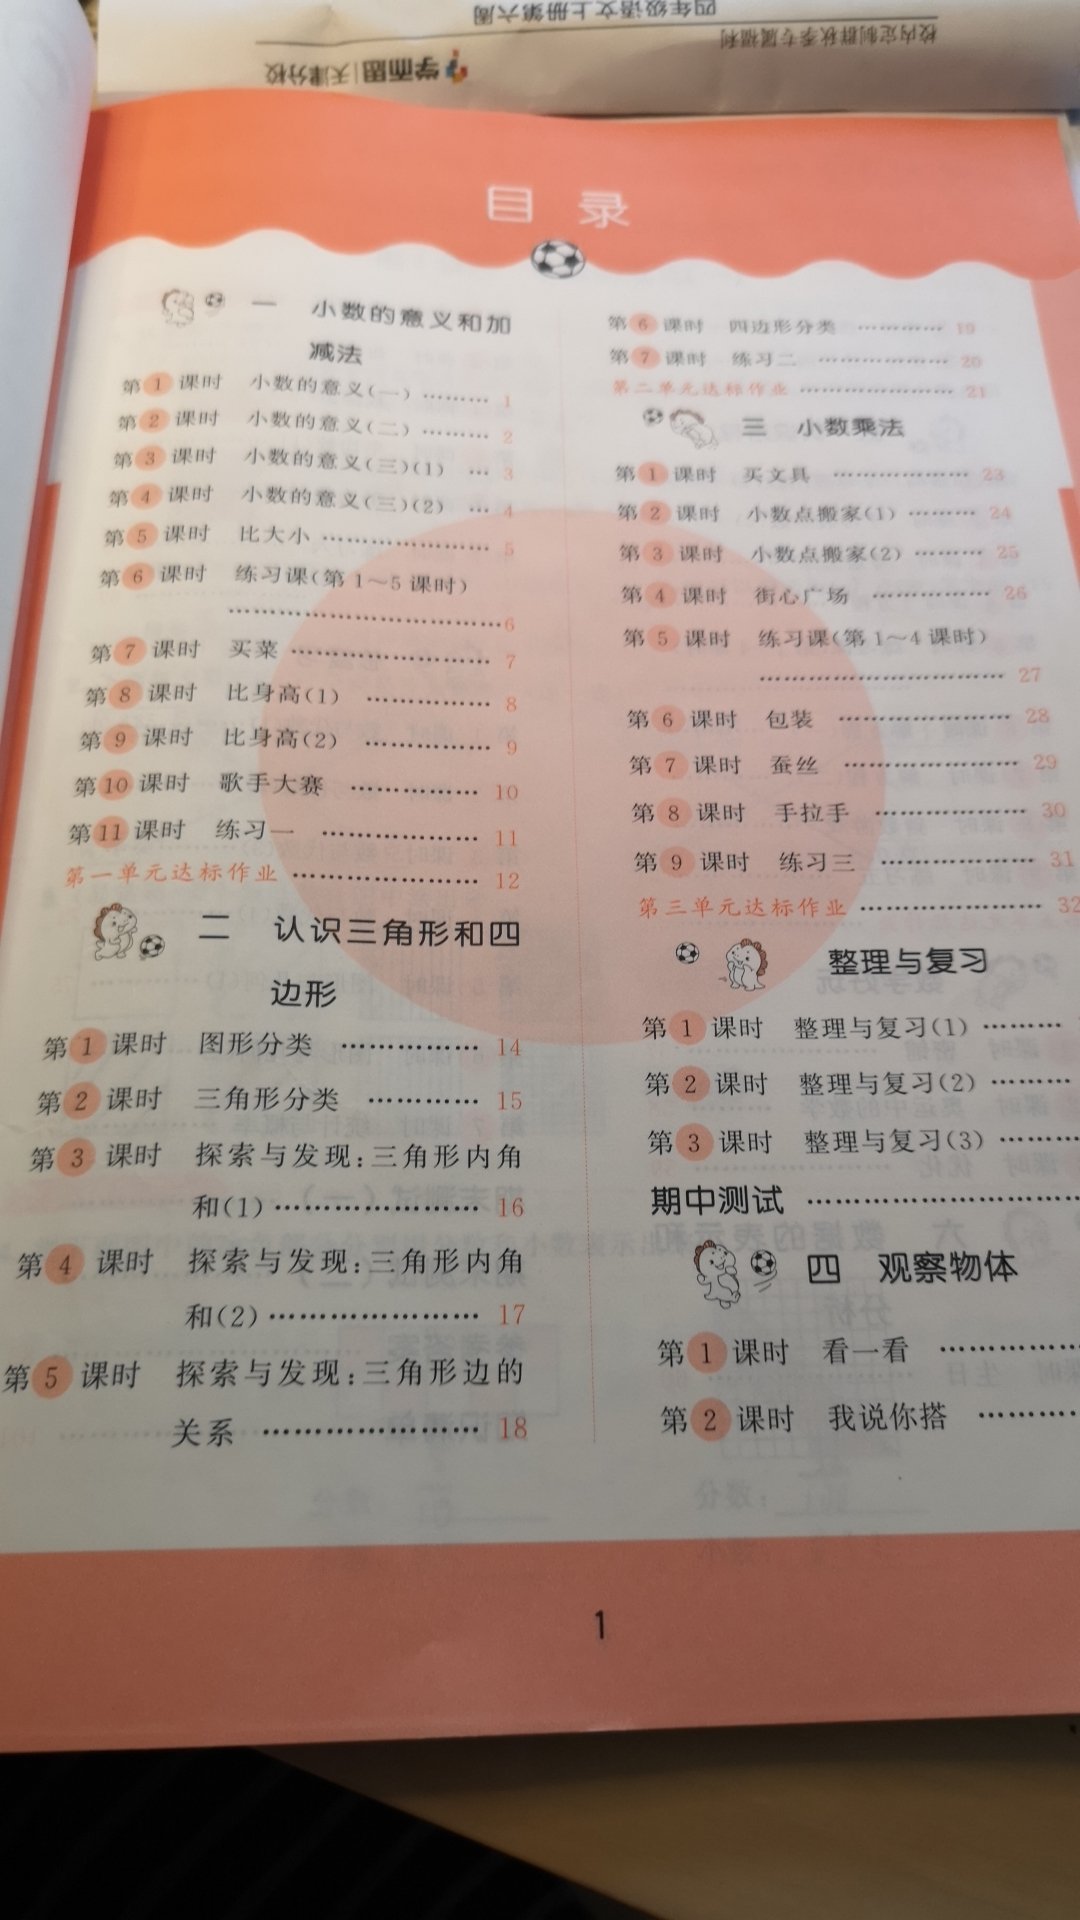 四年级语文上册第六周
校内定制群秋季专属福利
学而思|天津分校
目录
一 小数的意义和加
减法
第1课时 小数的意义(一) ……… 1
第2课时 小数的意义(二) ……… 2
第3课时 小数的意义(三)(1) … 3
第4课时 小数的意义(三)(2) … 4
第5课时 比大小 ………………… 5
第6课时 练习课(第1～5课时)
……………………………6
第7课时 买菜 …………………… 7
第8课时 比身高(1) …………… 8
第9课时 比身高(2) …………… 9
第10课时 歌手大赛 …………… 10
第11课时 练习一 ……………… 11
第一单元达标作业 ………………… 12
二 认识三角形和四
边形
第1课时 图形分类 …………… 14
第2课时 三角形分类 ………… 15
第3课时 探索与发现:三角形内角
和(1) ………………… 16
第4课时 探索与发现:三角形内角
和(2) ………………… 17
第5课时 探索与发现:三角形边的
关系 ………………… 18
第6课时 四边形分类 ………… 19
第7课时 练习二 ……………… 20
第二单元达标作业 ………………… 21
三 小数乘法
第1课时 买文具 ……………… 23
第2课时 小数点搬家(1) ……… 24
第3课时 小数点搬家(2) ……… 25
第4课时 街心广场 …………… 26
第5课时 练习课(第1～4课时)
………………………… 27
第6课时 包装 ………………… 28
第7课时 蚕丝 ………………… 29
第8课时 手拉手 ……………… 30
第9课时 练习三 ……………… 31
第三单元达标作业 ………………… 32
整理与复习
第1课时 整理与复习(1) ………
第2课时 整理与复习(2) ………
第3课时 整理与复习(3) ………
期中测试 …………………………
四 观察物体
第1课时 看一看 ……………
第2课时 我说你搭 …………
1